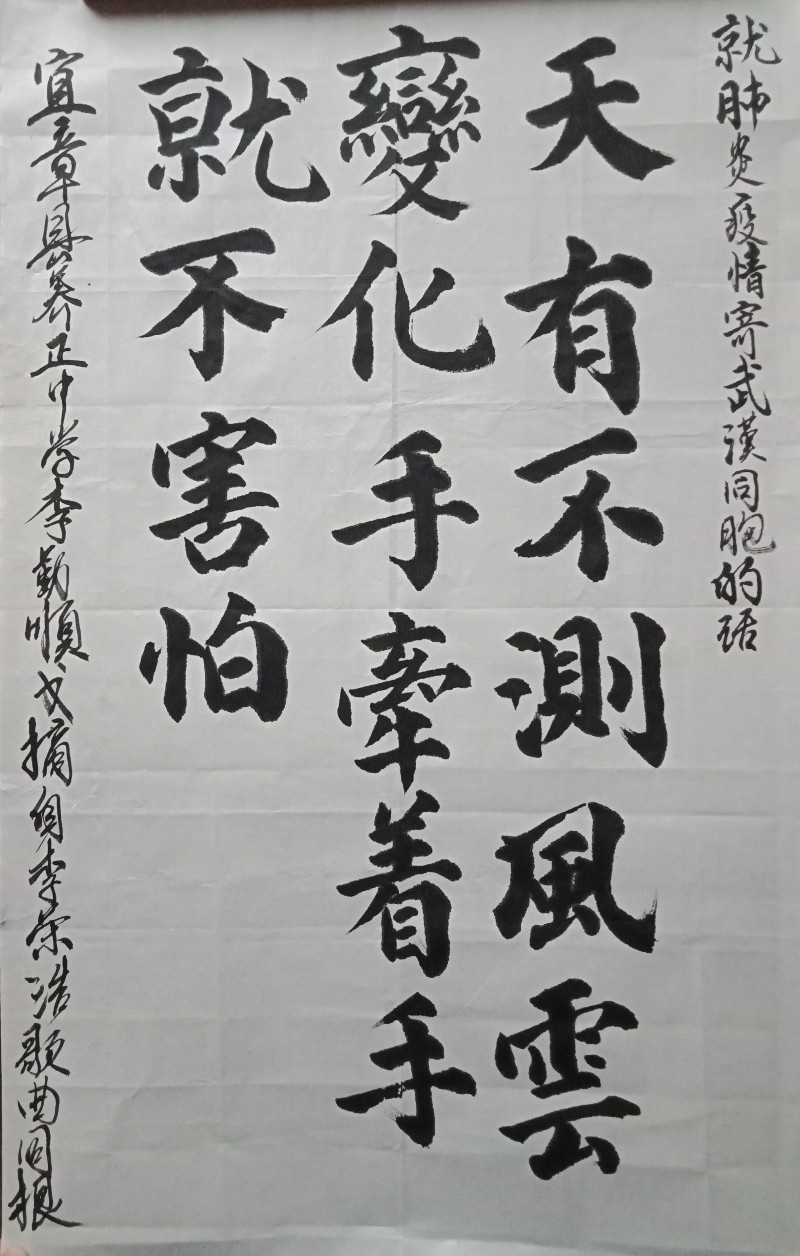 就肺炎疫情寄武漢同胞的话
天有不測風雲
變化手牽着手
就不害怕
宜章縣养正中学李勤順文摘自李荣浩歌曲同根